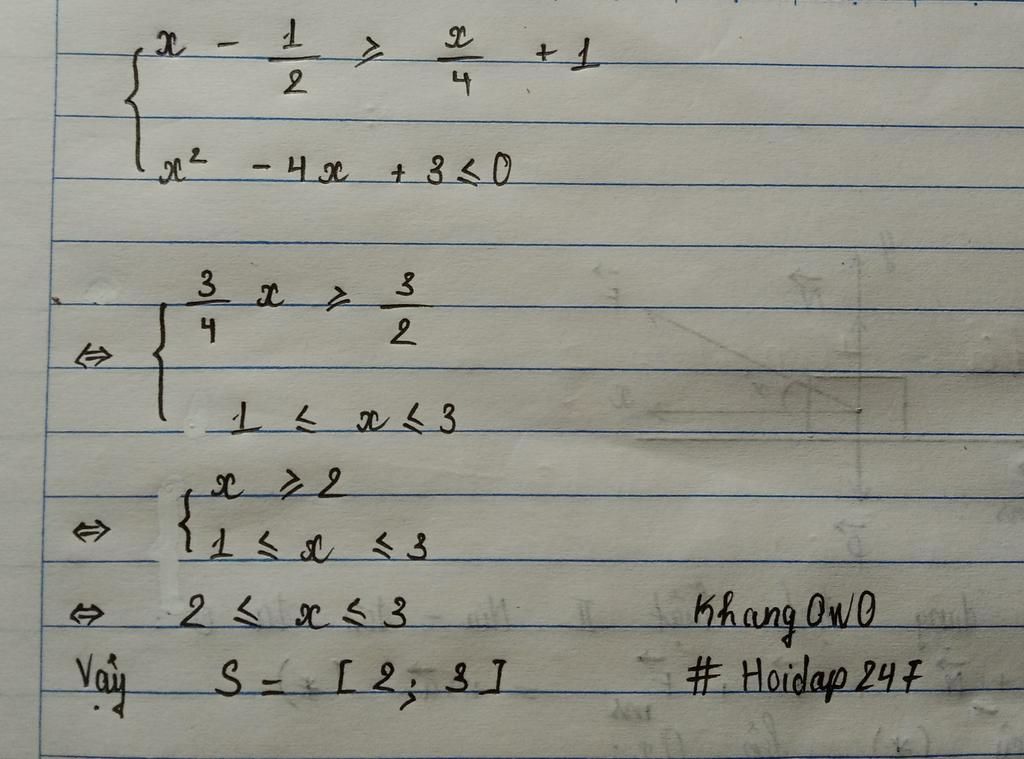 { x - 1/2 ≥ x/4 + 1
x² - 4x + 3 ≤ 0
⇔ { 3/4 x ≥ 3/2
1 ≤ x ≤ 3
⇔ { x ≥ 2
1 ≤ x ≤ 3
⇔ 2 ≤ x ≤ 3 Khang OwO
Vậy S = [2; 3] # Hoidap247